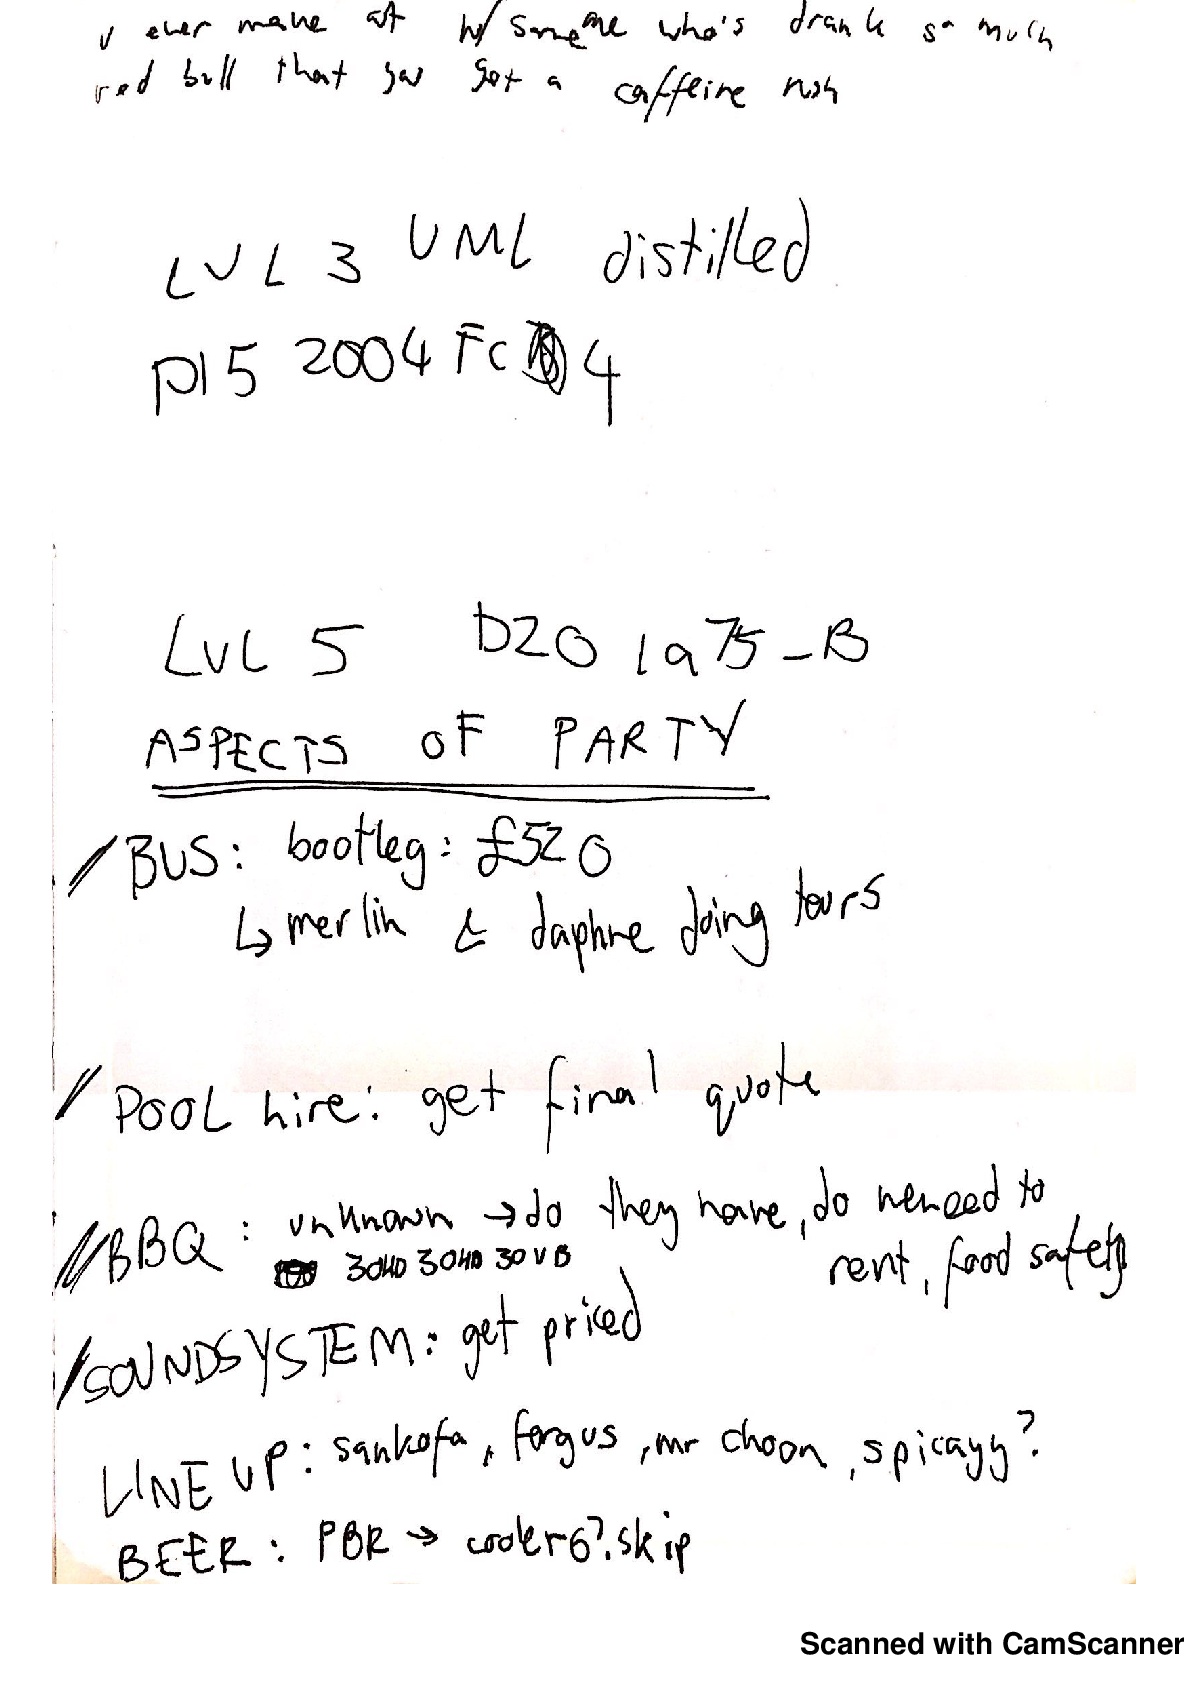 u ever make out w/ someone who's drank so much
red bull that you get a caffeine rush
LVL 3 UML distilled
P15 2004 FC 4
LVL 5 D20 1a75-B
ASPECTS OF PARTY
BUS: bootleg: £520
↳ merlin & daphne doing tours
POOL hire: get final quote
BBQ: unknown → do they have, do we need to
rent, food safety
30HD 30HD 30VB
SOUNDSYSTEM: get priced
LINE UP: sankofa, fergus, mr choon, spicayy?
BEER: PBR → cooler? skip
Scanned with CamScanner